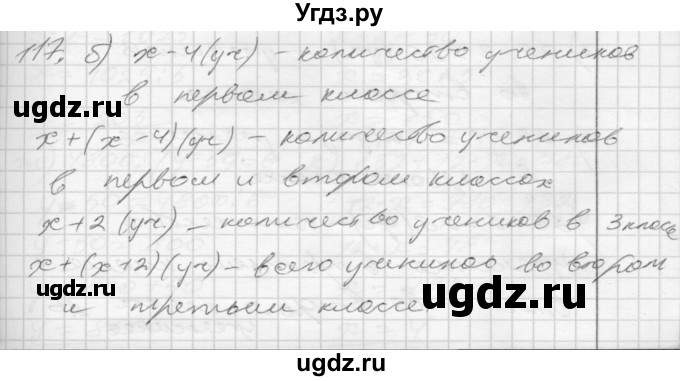 Угдз.ру
117. б) x - 4 (уч) - количество учеников
в первом классе
x + (x - 4) (уч) - количество учеников
в первом и втором классах
x + 2 (уч.) - количество учеников в 3 классе
x + (x + 2) (уч) - всего учеников во втором
и третьем классе
ugdz.ru
ugdz.ru
ugdz.ru
ugdz.ru
ugdz.ru
ugdz.ru